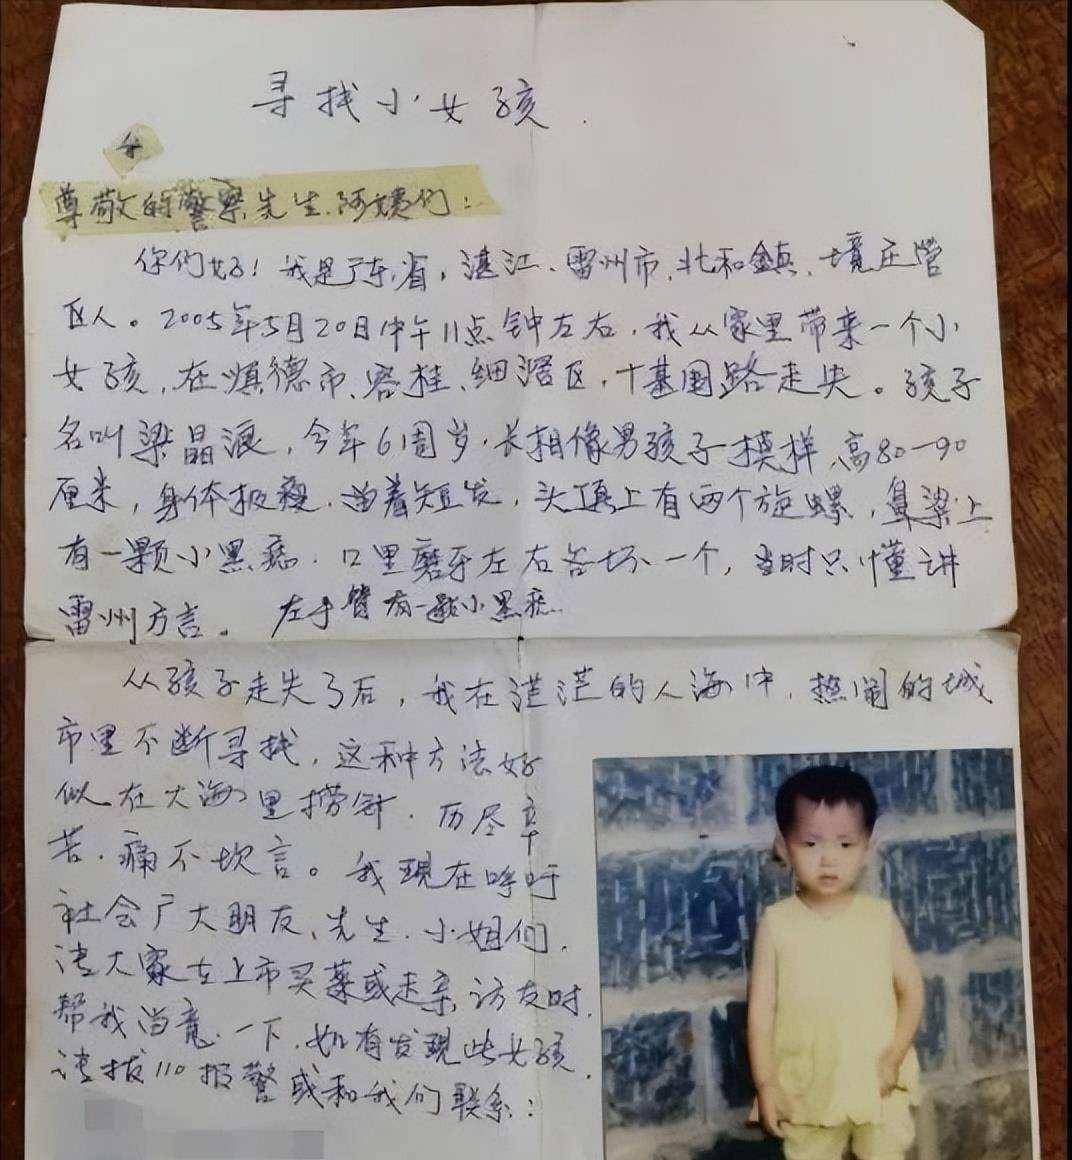 寻找小女孩.
尊敬的警察先生.阿姨们：
你们好！我是广东省，湛江、雷州市、北和鎮、境庄管
区人。2005年5月20日中午11点钟左右，我从家里带来一个小
女孩，在顺德市、容桂、细滘区，十基围路走失。孩子
名叫梁晶浪，今年6周岁，长相像男孩子模样，高80一90
厘米，身体极瘦，留着短发，头顶上有两个旋螺，鼻梁上
有一颗小黑痣，口里磨牙左右各坏一个，当时只懂讲
雷州方言。左手臂有一颗小黑痣
从孩子走失了后，我在茫茫的人海中，热闹的城
市里不断寻找，这种方法好
似在大海里捞针，历尽辛
苦，痛不坎言。我現在呼吁
社会广大朋友、先生、小姐们，
请大家在上市买菜或走亲访友时，
帮我留意一下，如有发現此女孩，
请拔110报警或和我们联系：